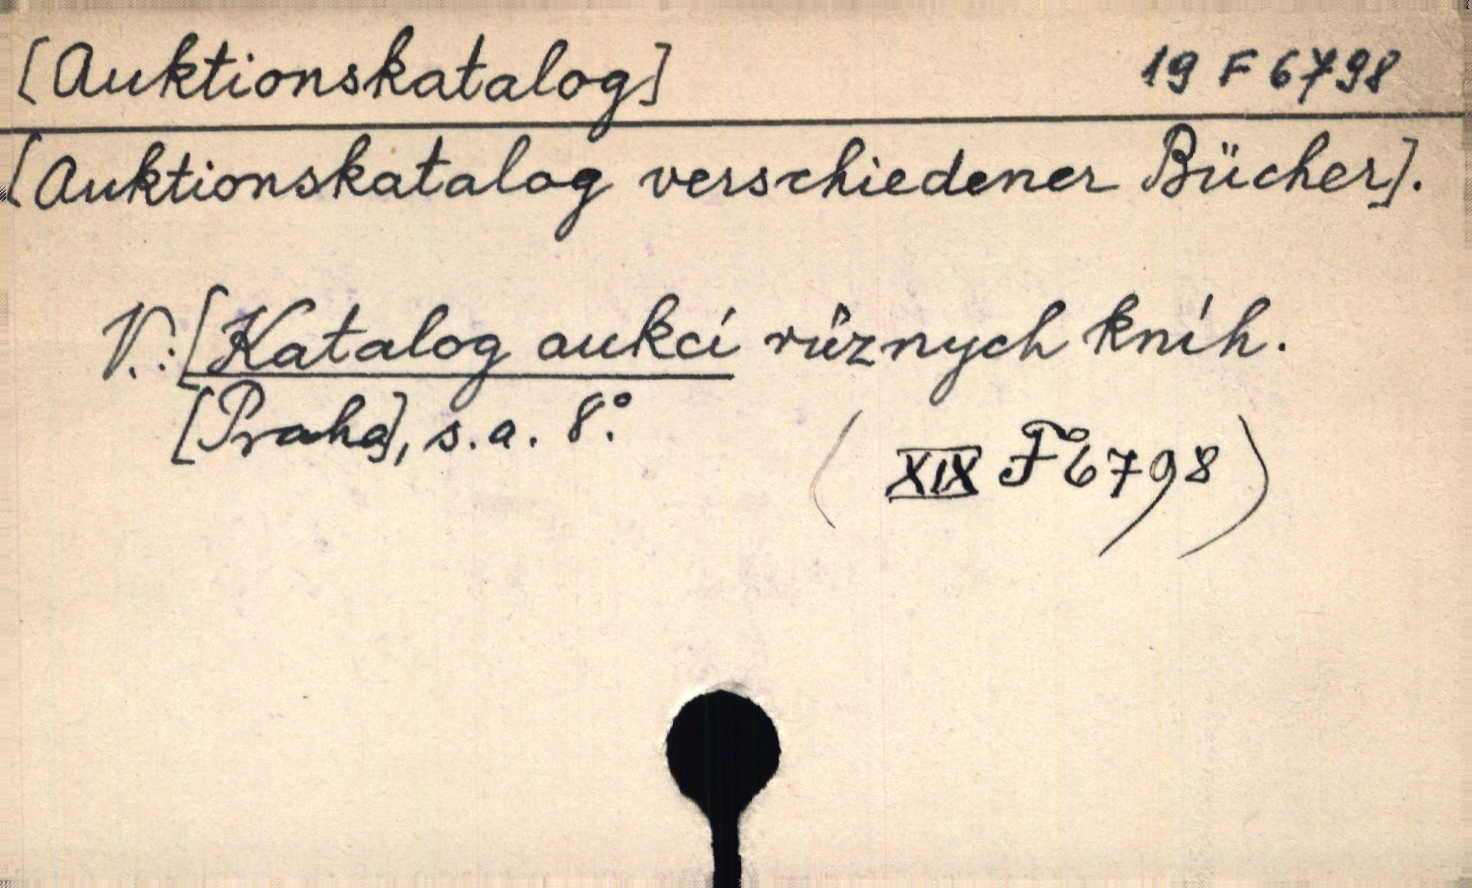 [Auktionskatalog] 19 F 6798
[Auktionskatalog verschiedener Bücher].
V.: [Katalog aukcí různych knih.
[Praha], s.a. 8°.
(XIX F 6798)